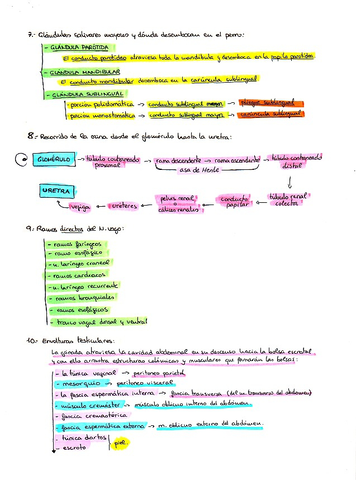 7.- Glándulas salivares mayores y dónde desembocan en el perro:
- GLÁNDULA PARÓTIDA
El conducto parotídeo atraviesa toda la mandíbula y desemboca en la papila parotídea
- GLÁNDULA MANDIBULAR
El conducto mandibular desemboca en la carúncula sublingual
- GLÁNDULA SUBLINGUAL
· porción polistomática → conducto sublingual → pliegue sublingual
· porción monostomática → conducto sublingual mayor → carúncula sublingual
8.- Recorrido de la orina desde el glomérulo hasta la uretra:
GLOMÉRULO → túbulo contorneado proximal → rama descendente → rama ascendente → túbulo contorneado distal
asa de Henle
URETRA ← vejiga ← uréteres ← pelvis renal cálices renales ← conducto papilar ← túbulo renal colector
9.- Ramos directos del N. vago:
- ramos faríngeos
- ramo esofágico
- n. laríngeo craneal
- ramos cardiacos
- n. laríngeo recurrente
- ramos bronquiales
- ramos esofágicos
- tronco vagal dorsal y ventral
10.- Envolturas testiculares:
La gónada atraviesa la cavidad abdominal en su descenso hacia la bolsa escrotal
y con ello arrastra estructuras y musculares que formarán las bolsas:
- la túnica vaginal → peritoneo parietal
- mesorquio → peritoneo visceral
- la fascia espermática interna → fascia transversa (del m. transverso del abdomen)
- músculo cremáster → músculo oblicuo interno del abdomen
- fascia cremastérica
- fascia espermática externa → m. oblicuo externo del abdomen
- túnica dartos
- escroto
piel